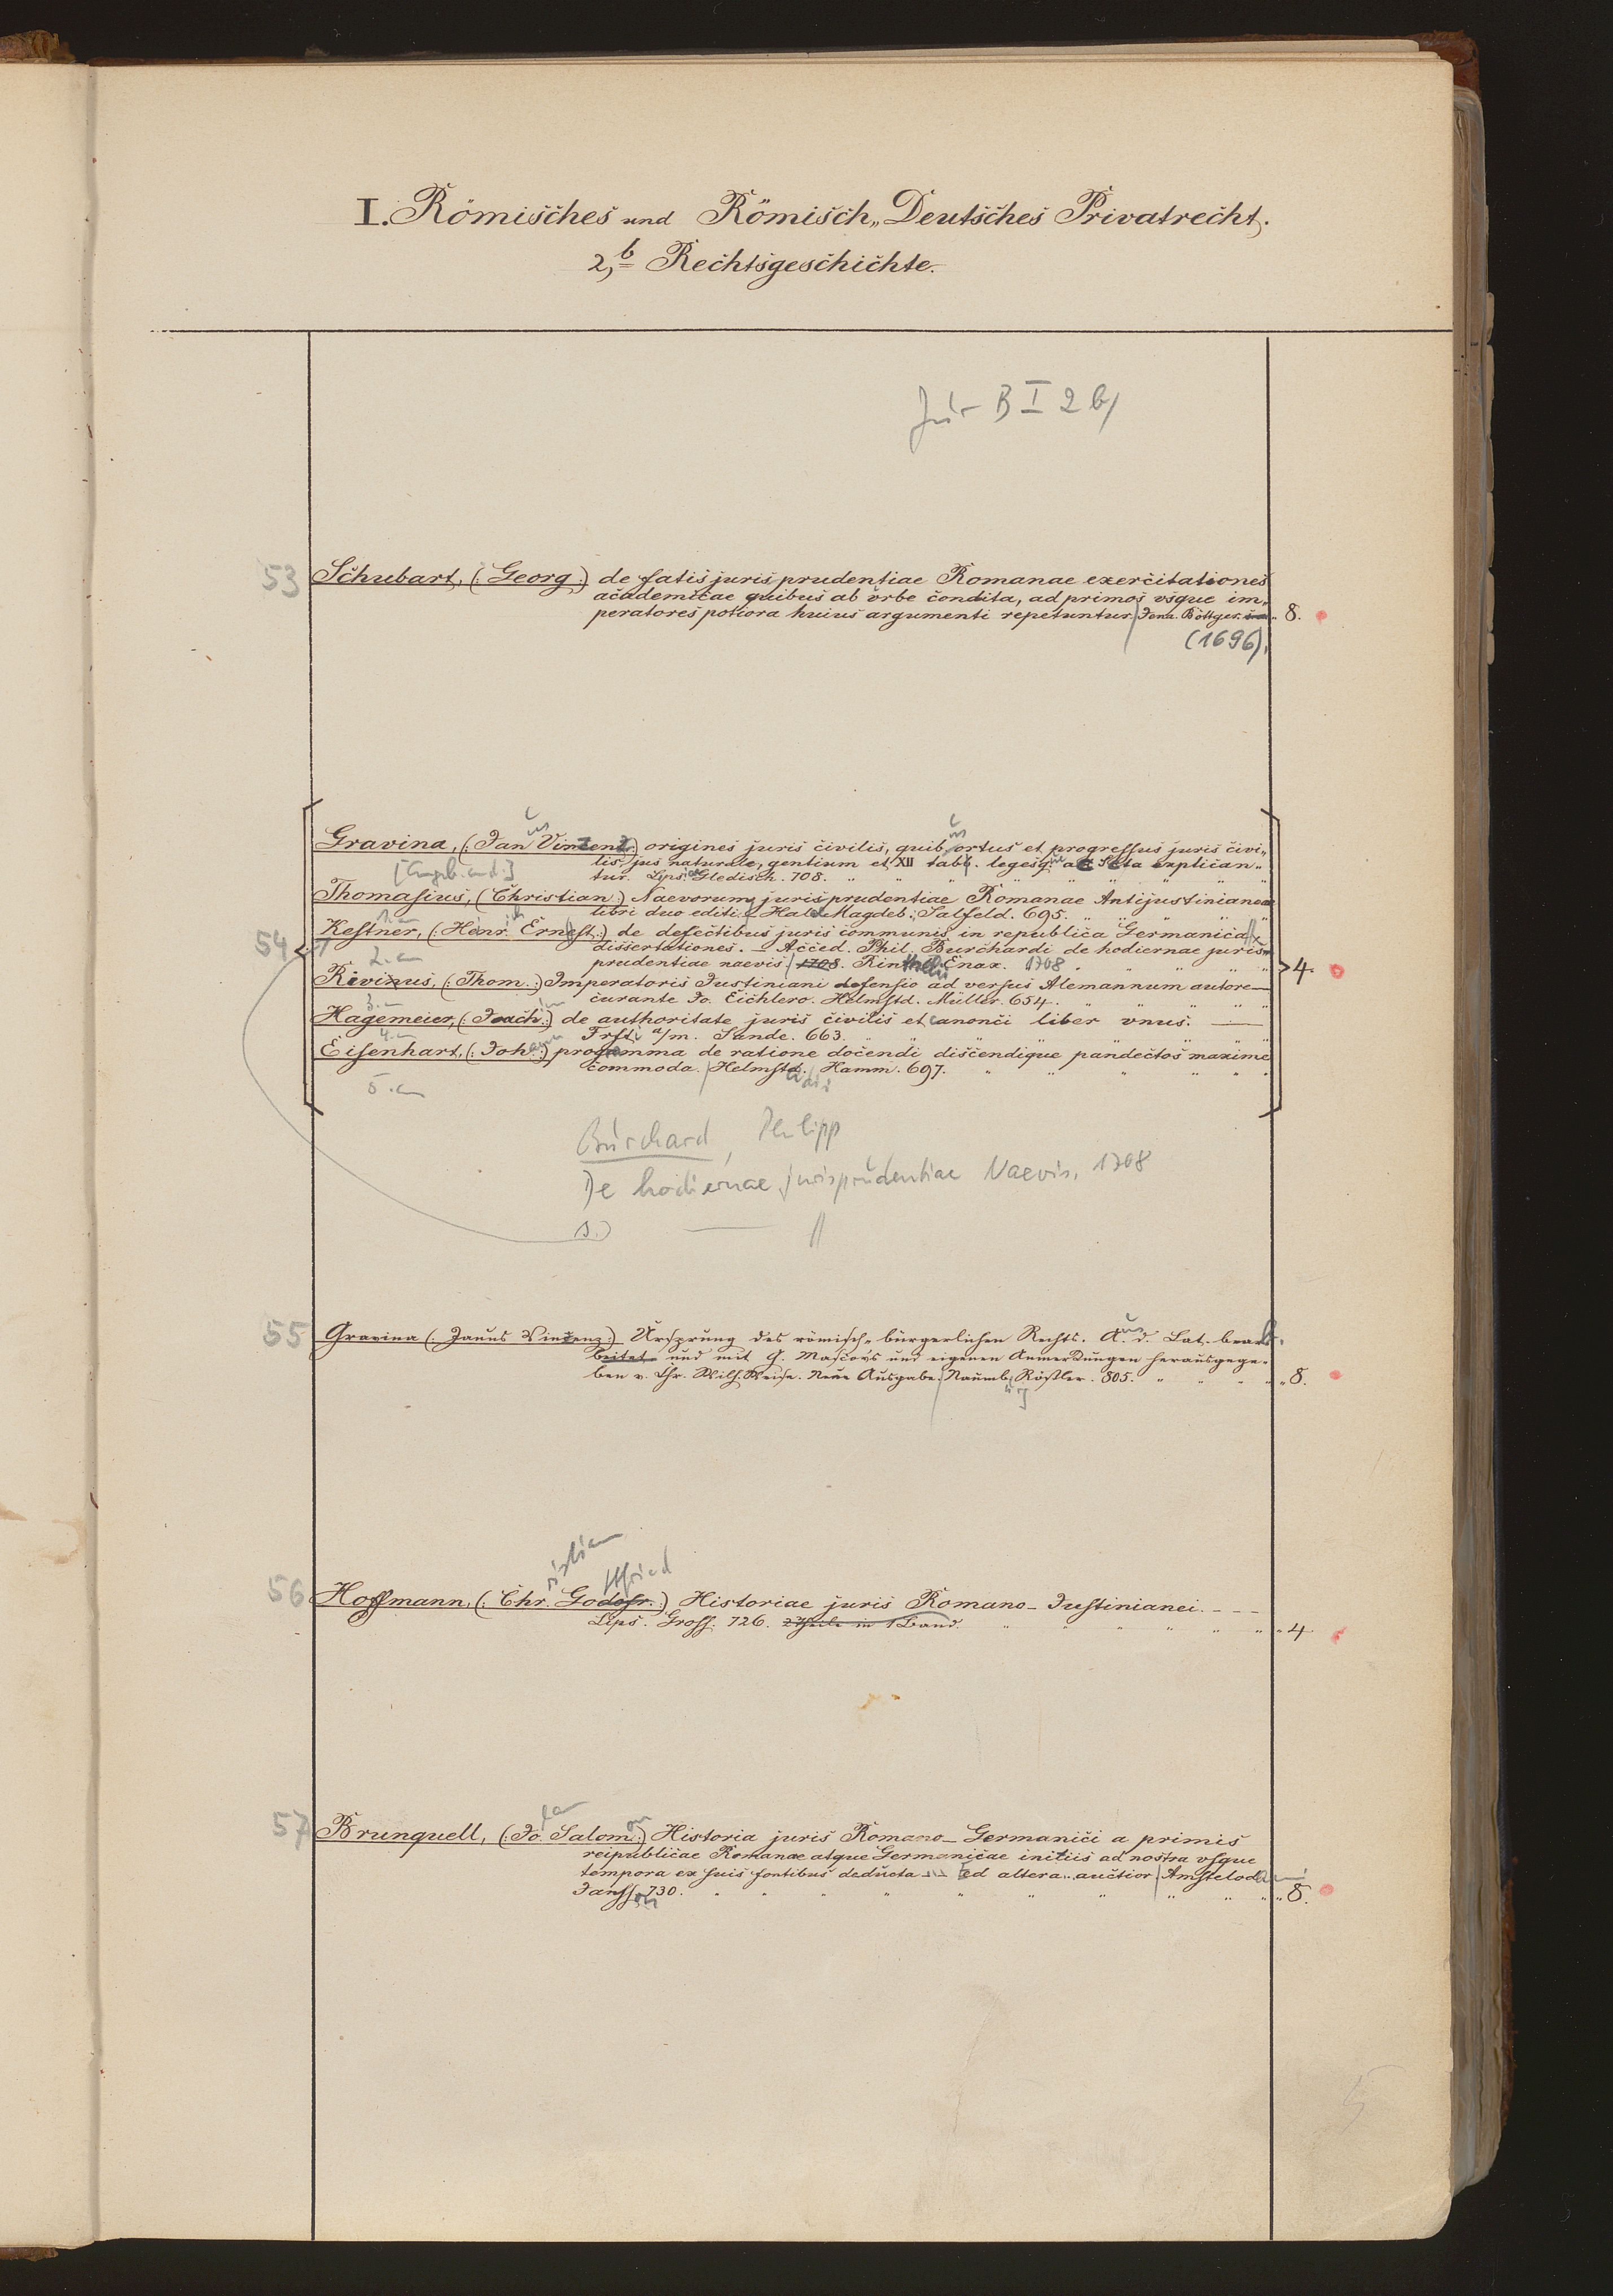 I. Römisches und Römisch„Deutsches Privatrecht.
2,b Rechtsgeschichte.
Jur B I 2 b/
53 Schubart, (: Georg :) de fatis jurisprudentiae Romanae exercitationes
academicae quibus ab vrbe condita, ad primos vsque im„
peratores potiora huius argumenti repetuntur. Jena. Böttger. „ 8.
(1696).
Gravina, (: Jan us Vinzenz :) origines juris civilis, quib us ortus et progressus juris civi„
lis, jus naturale, gentium et XII tabb. legesq. ac Scta explican„
[Angeb. und.] tur. Lips. Gledisch. 708. „ „ „ „ „ „ „
Thomasius, (: Christian :) Naevorum jurisprudentiae Romanae Antijustinianeae
1. an libri duo editi. Hal. Magdeb. Salfeld. 695. „ „ „ „
54 Kestner, (: Henr. Ernest. :) de defectibus juris communis in republica Germanica
2. an dissertationes. – Acced. Phil. Burchardi de hodiernae juris„
prudentiae naevis 1708. Rinthelii Enax. 1708 „ „ „ „ 4.
Rivinus, (: Thom. :) Imperatoris Justiniani defensio adversus Alemannum autore —
3. an curante Jo. Eichlero. Helmstd. Müller. 654. „ „ „ „
Hagemeier, (: Joach im :) de authoritate juris civilis et canonci liber vnus. —
4. an Frfti a/m. Sande. 663. „ „ „ „ „ „
Eisenhart, (: Joh ann :) programma de ratione docendi discendique pandectos maxime
commoda. Helmstadii Hamm. 697. „ „ „ „ „ „
5. an
Burchard, Philipp
De hodiernae jurisprudentiae Naevis. 1708
1.) — „
55 Gravina (: Janus Vinzenz :) Ursprung des römisch„bürgerlichen Rechts. Aus d. Lat. bearb.
beitet und mit G. Mascov's und eigenen Anmerkungen herausgege„
ben v. Chr. Wilh. Weise. Neue Ausgabe. Naumb. Rößler. 805. „ „ „ „ 8.
ristian ttfried
56 Hoffmann, (: Chr. Godofr. :) Historiae juris Romano – Justinianei. – – –
Lips. Gross. 726. 2 Theile in 1 Band. „ „ „ „ „ „ 4.
57 Brunquell, (: Jo. Salom on :) Historia juris Romano – Germanici a primis
reipublicae Romanae atque Germanicae initiis ad nostra vsque
tempora ex suis fontibus deducta ed altera auctior Amstelod
Jansson 730. „ „ „ „ „ „ „ „ „ „ 8.